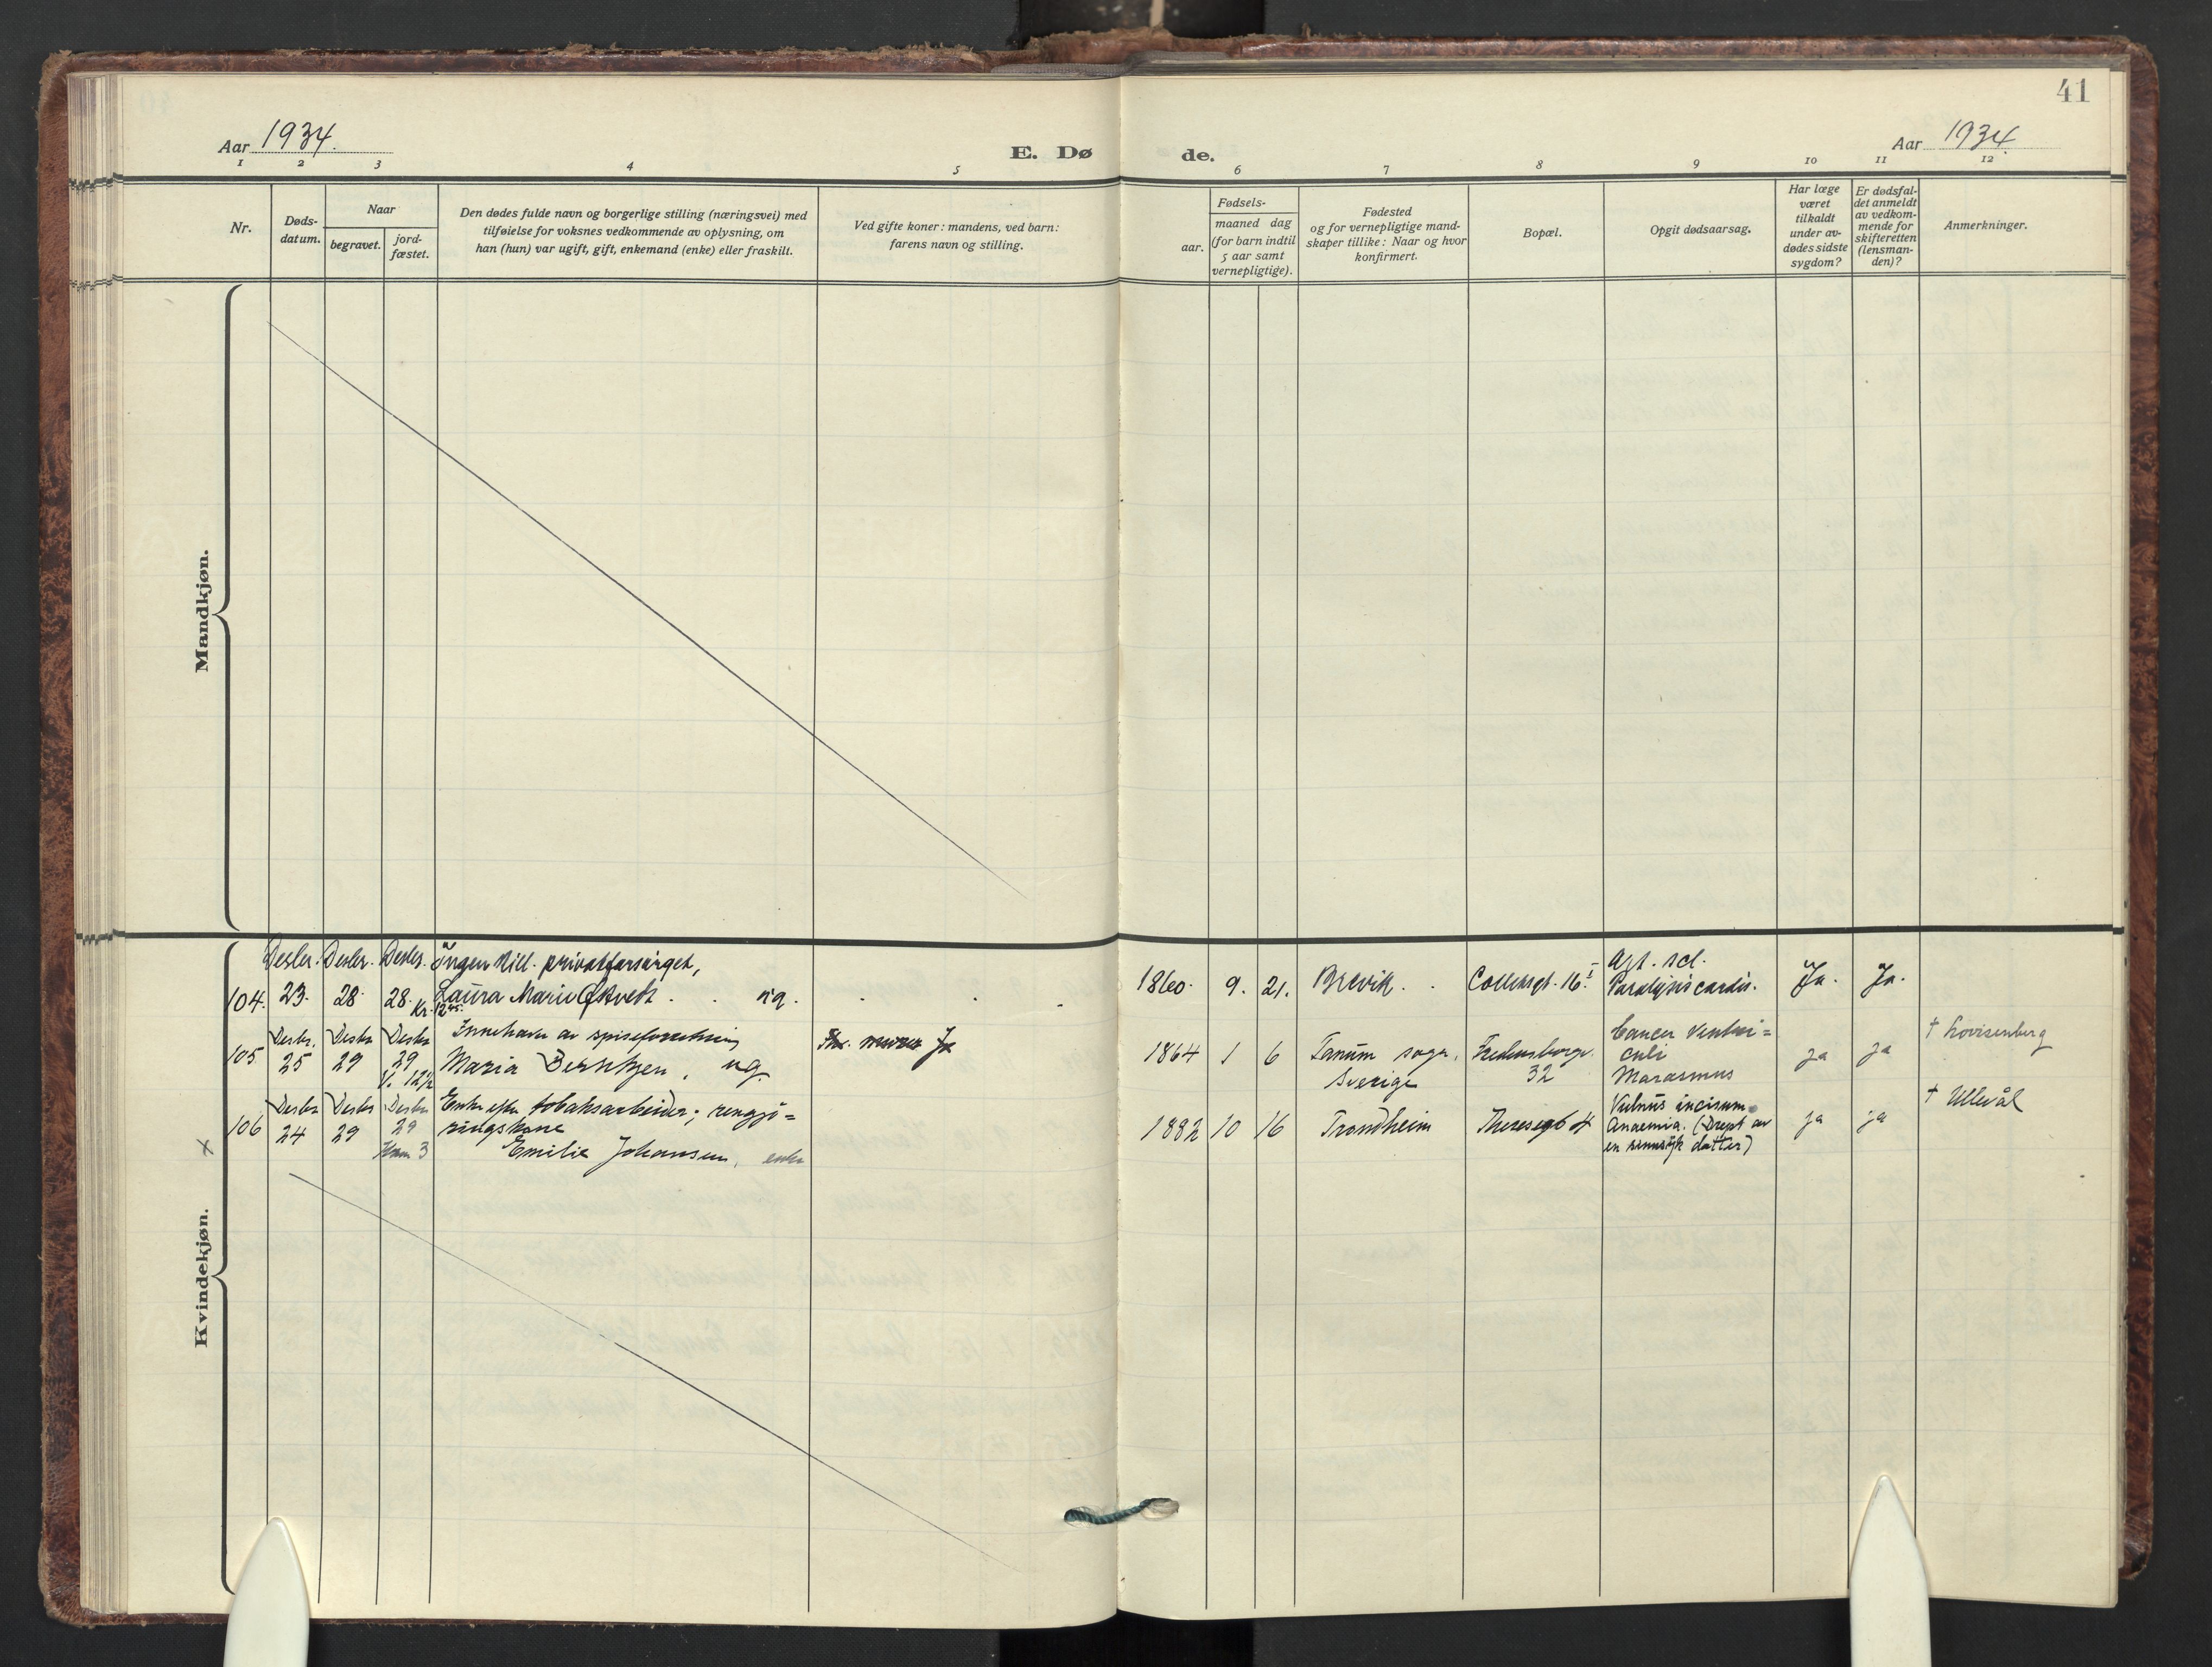 41
Aar 1934.
E. Dø de.
Aar 1934.
1 2 3 4 5 6 7 8 9 10 11 12
Nr.
Døds-
datum.
Naar
begravet.
jord-
fæstet.
Den dødes fulde navn og borgerlige stilling (næringsvei) med
tilføielse for voksnes vedkommende av oplysning, om
han (hun) var ugift, gift, enkemand (enke) eller fraskilt.
Ved gifte koner: mandens, ved barn:
farens navn og stilling.
Fødsels-
aar.
maaned dag
(for barn indtil
5 aar samt
vernepligtige).
Fødested
og for vernepligtige mand-
skaper tillike: Naar og hvor
konfirmert.
Bopæl.
Opgit dødsaarsag.
Har læge
været
tilkaldt
under av-
dødes sidste
sygdom?
Er dødsfal-
det anmeldt
av vedkom-
mende for
skifteretten
(lensman-
den)?
Anmerkninger.
Mandkjøn.
Kvindekjøn.
Desbr. Desbr. Desbr. Ingen still. privatforsørget,
104. 23. 28. 28. Kr. 12 45. Laura Marie Østvedt . . ug.
1860. 9. 21. Brevik. . Colletsgt. 16 I
Art. scl.
Paralysis cordis. Ja. Ja.
Desbr. Desbr Desbr Innehaver av spiseforretning
105 25 29 29 V. 12½ Maria Berntzen, ug.
1864 1 6 Tanum sogn,
Sverige
Fredensborgv.
32
Cancer ventri=
culi
Marasmus
ja ja † Lovisenberg
Desbr Desbr Desbr Enke efter tobaksarbeider; rengjø=
106 24 29 29 ringskone
Ham 3 Emilie Johansen, enke
1882 10 16 Trondheim Theresesgt 4
Vulnus incisum.
Anaemia. (Drept av
en sinnsyk datter)
ja ja † Ullevål
x